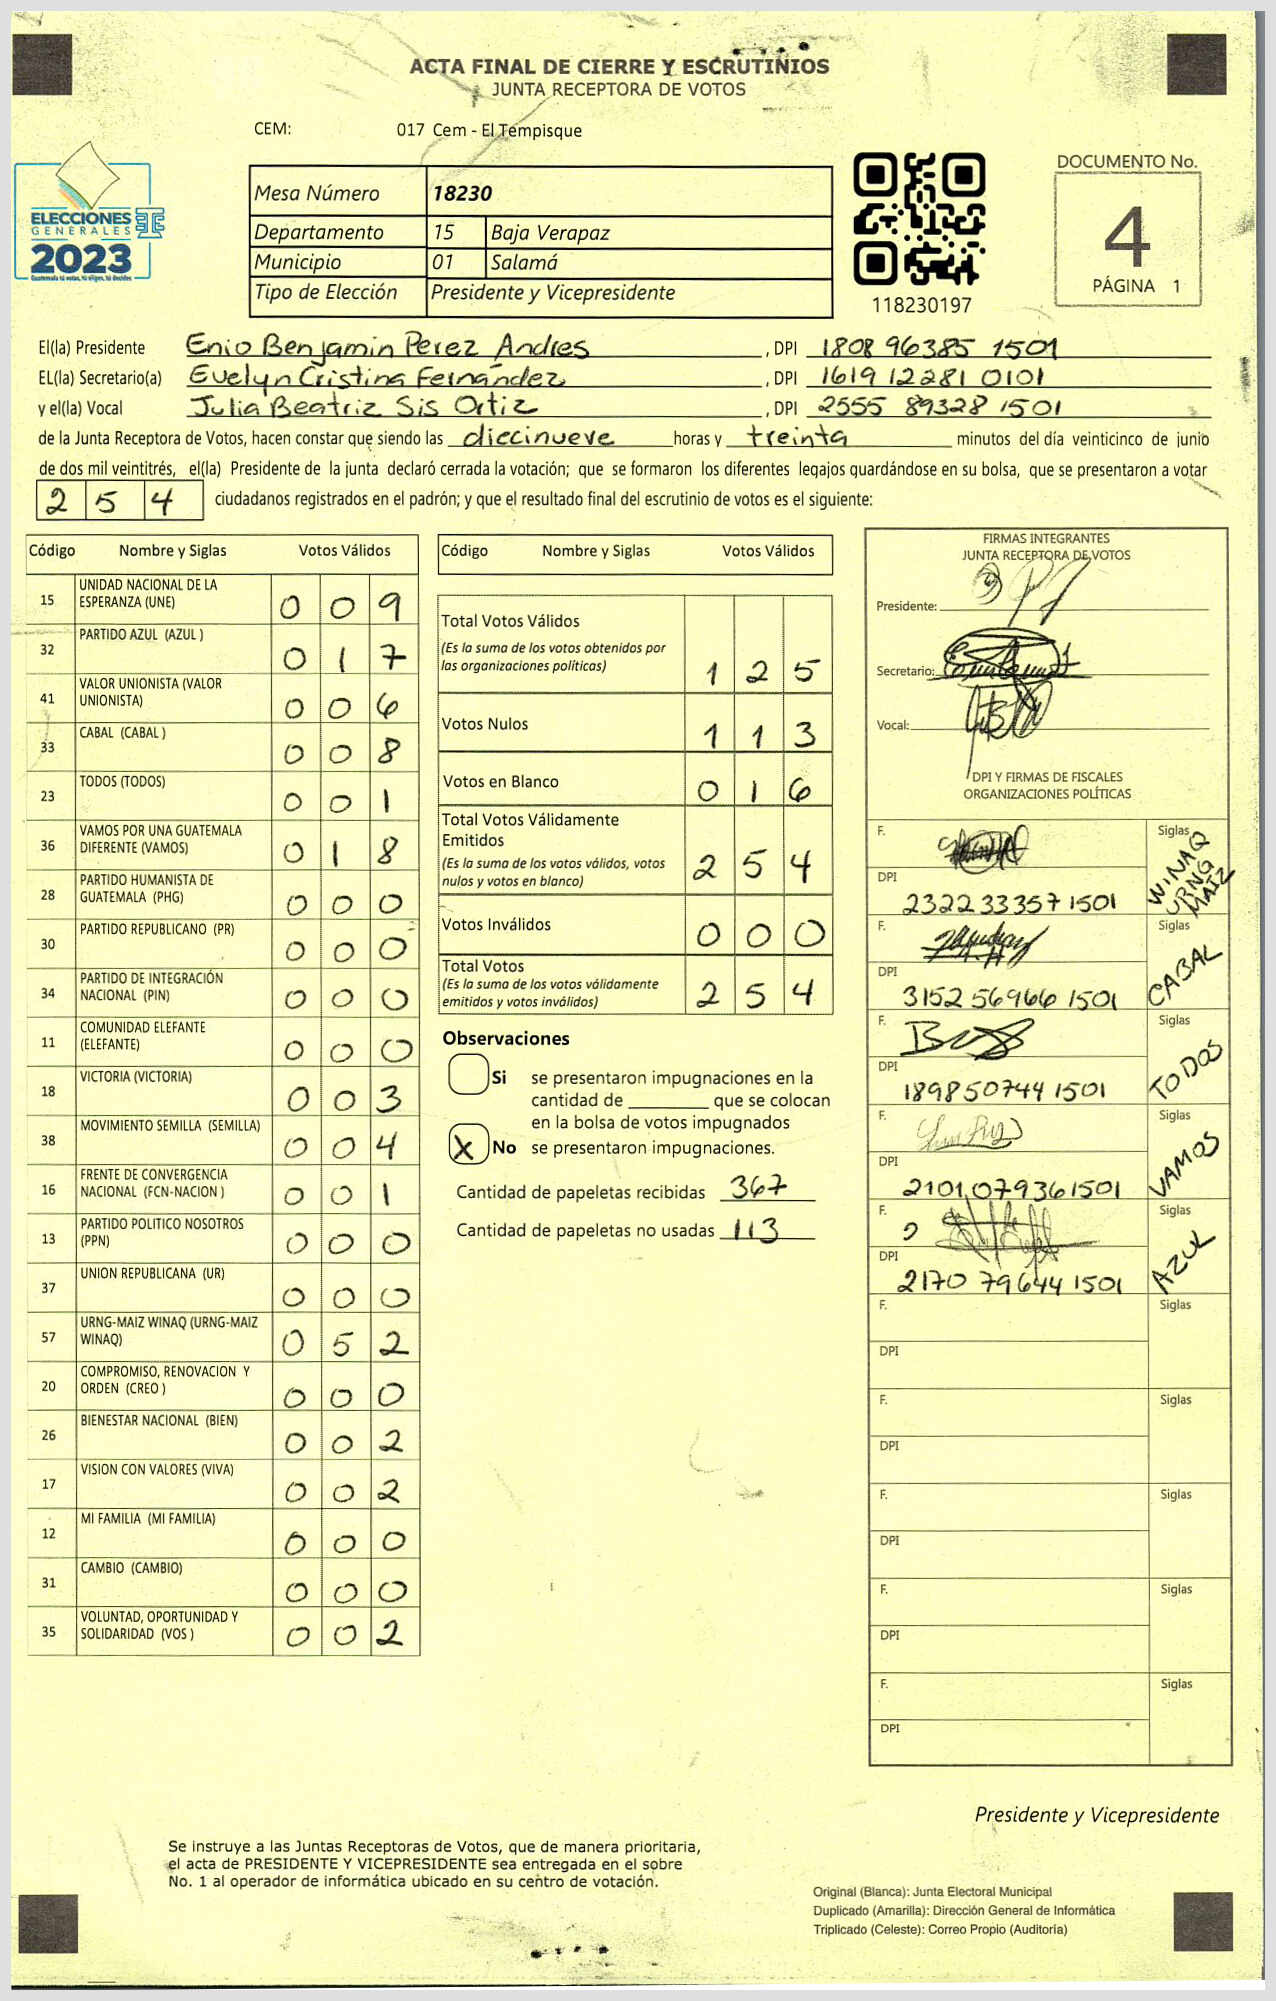 ACTA FINAL DE CIERRE Y ESCRUTINIOS
JUNTA RECEPTORA DE VOTOS
CEM: 017 Cem - El Tempisque
ELECCIONES
GENERALES
2023
Guatemala tú votas, tú eliges, tú decides
Mesa Número 18230
Departamento 15 Baja Verapaz
Municipio 01 Salamá
Tipo de Elección Presidente y Vicepresidente
118230197
DOCUMENTO No.
4
PÁGINA 1
El(la) Presidente Enio Benjamin Perez Andres , DPI 1808 96385 1501
EL(la) Secretario(a) Evelyn Cristina Fernández , DPI 1619 12281 0101
y el(la) Vocal Julia Beatriz Sis Ortiz , DPI 2555 89328 1501
de la Junta Receptora de Votos, hacen constar que siendo las diecinueve horas y treinta minutos del día veinticinco de junio
de dos mil veintitrés, el(la) Presidente de la junta declaró cerrada la votación; que se formaron los diferentes legajos guardándose en su bolsa, que se presentaron a votar
254 ciudadanos registrados en el padrón; y que el resultado final del escrutinio de votos es el siguiente:
Código Nombre y Siglas Votos Válidos
15 UNIDAD NACIONAL DE LA
ESPERANZA (UNE) 0 0 9
32 PARTIDO AZUL (AZUL ) 0 1 7
41 VALOR UNIONISTA (VALOR
UNIONISTA) 0 0 6
33 CABAL (CABAL ) 0 0 8
23 TODOS (TODOS) 0 0 1
36 VAMOS POR UNA GUATEMALA
DIFERENTE (VAMOS) 0 1 8
28 PARTIDO HUMANISTA DE
GUATEMALA (PHG) 0 0 0
30 PARTIDO REPUBLICANO (PR) 0 0 0
34 PARTIDO DE INTEGRACIÓN
NACIONAL (PIN) 0 0 0
11 COMUNIDAD ELEFANTE
(ELEFANTE) 0 0 0
18 VICTORIA (VICTORIA) 0 0 3
38 MOVIMIENTO SEMILLA (SEMILLA) 0 0 4
16 FRENTE DE CONVERGENCIA
NACIONAL (FCN-NACION ) 0 0 1
13 PARTIDO POLITICO NOSOTROS
(PPN) 0 0 0
37 UNION REPUBLICANA (UR) 0 0 0
57 URNG-MAIZ WINAQ (URNG-MAIZ
WINAQ) 0 5 2
20 COMPROMISO, RENOVACION Y
ORDEN (CREO ) 0 0 0
26 BIENESTAR NACIONAL (BIEN) 0 0 2
17 VISION CON VALORES (VIVA) 0 0 2
12 MI FAMILIA (MI FAMILIA) 0 0 0
31 CAMBIO (CAMBIO) 0 0 0
35 VOLUNTAD, OPORTUNIDAD Y
SOLIDARIDAD (VOS ) 0 0 2
Código Nombre y Siglas Votos Válidos
Total Votos Válidos
(Es la suma de los votos obtenidos por
las organizaciones políticas) 1 2 5
Votos Nulos 1 1 3
Votos en Blanco 0 1 6
Total Votos Válidamente
Emitidos
(Es la suma de los votos válidos, votos
nulos y votos en blanco) 2 5 4
Votos Inválidos 0 0 0
Total Votos
(Es la suma de los votos válidamente
emitidos y votos inválidos) 2 5 4
Observaciones
Si se presentaron impugnaciones en la
cantidad de ________ que se colocan
en la bolsa de votos impugnados
X No se presentaron impugnaciones.
Cantidad de papeletas recibidas 367
Cantidad de papeletas no usadas 113
FIRMAS INTEGRANTES
JUNTA RECEPTORA DE VOTOS
Presidente:
Secretario:
Vocal:
DPI Y FIRMAS DE FISCALES
ORGANIZACIONES POLÍTICAS
F. Siglas WINAQ
URNG
MAIZ
DPI 2322 33357 1501
F. Siglas CABAL
DPI 3152 56966 1501
F. Siglas TODOS
DPI 1898 50744 1501
F. Siglas VAMOS
DPI 2101 07936 1501
F. Siglas AZUL
DPI 2170 79644 1501
F. Siglas
DPI
F. Siglas
DPI
F. Siglas
DPI
F. Siglas
DPI
F. Siglas
DPI
Presidente y Vicepresidente
Se instruye a las Juntas Receptoras de Votos, que de manera prioritaria,
el acta de PRESIDENTE Y VICEPRESIDENTE sea entregada en el sobre
No. 1 al operador de informática ubicado en su centro de votación.
Original (Blanca): Junta Electoral Municipal
Duplicado (Amarilla): Dirección General de Informática
Triplicado (Celeste): Correo Propio (Auditoría)